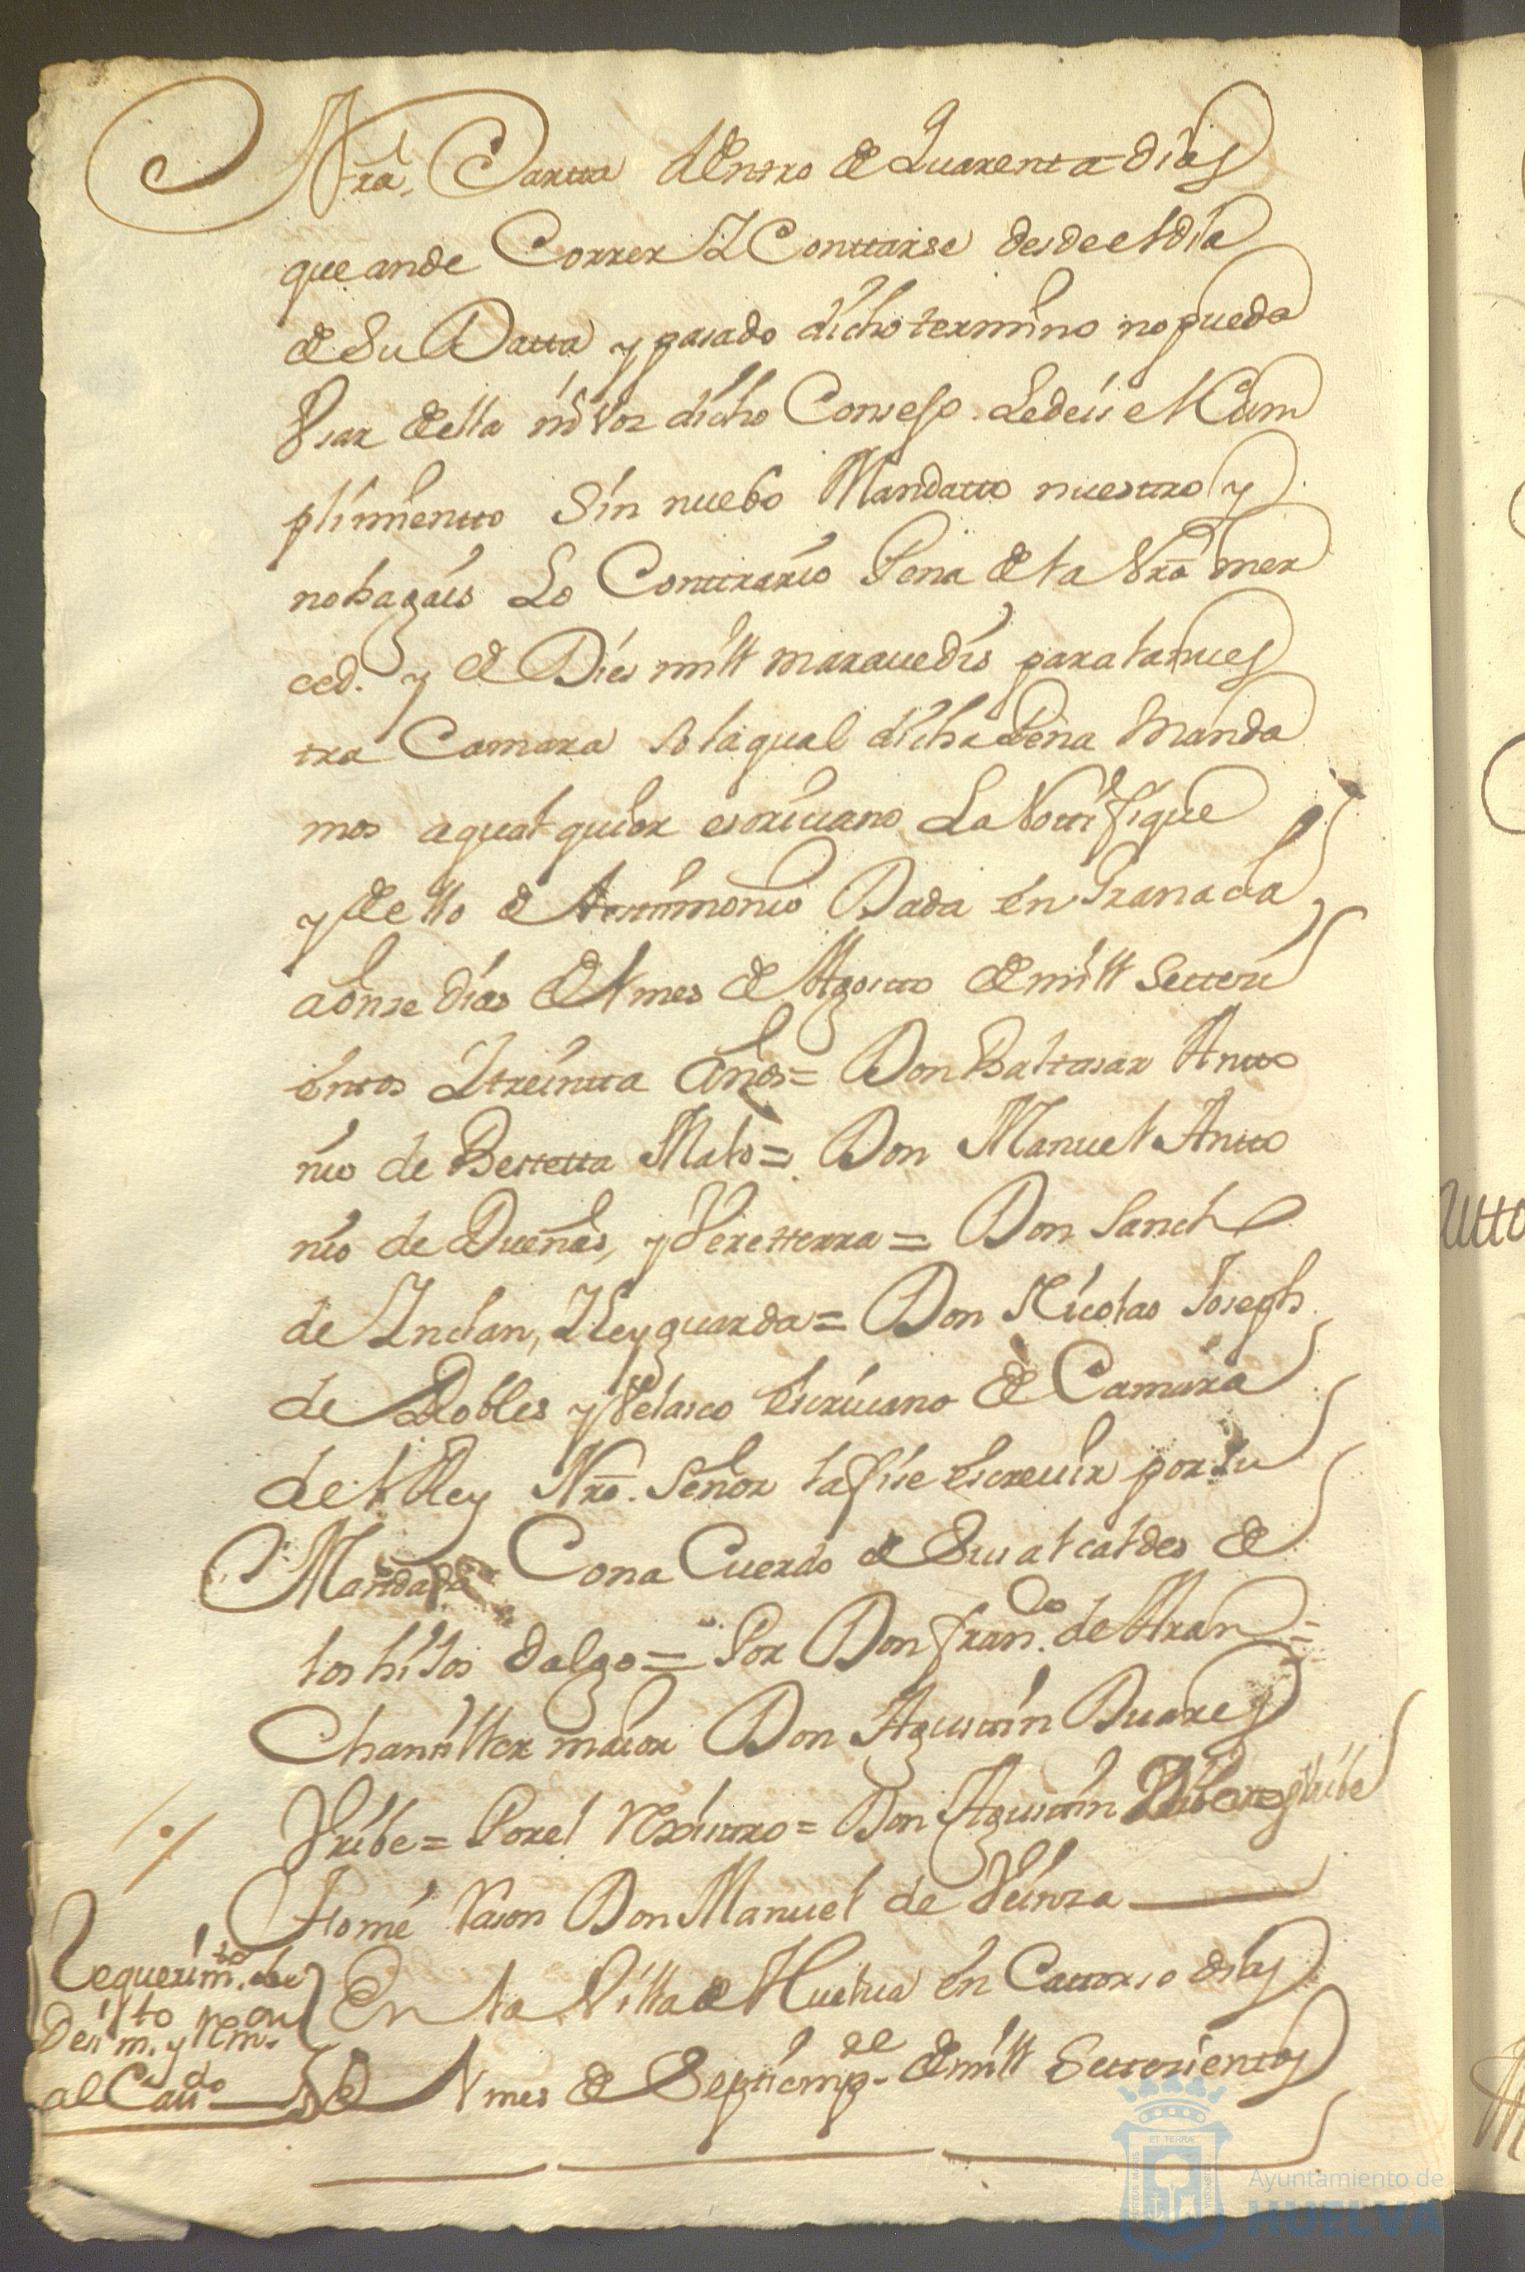 Nrâ, Cartta dentro de Quarenta dias
que ande Correr Y Conttarse desde el dia
de Su Datta y pasado dicho termino no pueda
Vsar della ni vos dicho Consejo Le deis el Cum
plimientto Sin nuebo Mandatto nuesttro y
no hagais Lo Conttrario Pena de la Nrâ mer
ced. y de Dies mill maravedis para la nues
tra Camara so la qual dicha Pena Manda
mos a qualquier escrivano La Nottifique
y dello de testtimonio Dada en Granada
a onse dias del mes de Agostto de mill Setteci
entos Y treintta Años = Don Balttasar Antto
nio de Bertetta Malo = Don Manuel Antto
nio de Dueñas, y = Don Sanch
de Inclan, Y Leyguarda = Don Nicolas Joseph
de Robles y Velasco escrivano de Camara
del Rey Nrô. Señor la fise escrevir por su
Mandado Con a Cuerdo de Sus alcaldes de
los hijos dalgo = Por Don Fran.co de Aran =
Chansiller maior Don Agusttin Duares
Vribe = Por el Rexisttro = Don Agusttin Vribe
Tomé rason Don Manuel de Veinza
En la Villa de Huelva en Cattorse dias
del mes de Septtiemp.re de mill Settesienttos
Requerim.to
Des.to m. y Nom.
al Cav.do
Ayuntamiento de
HUELVA